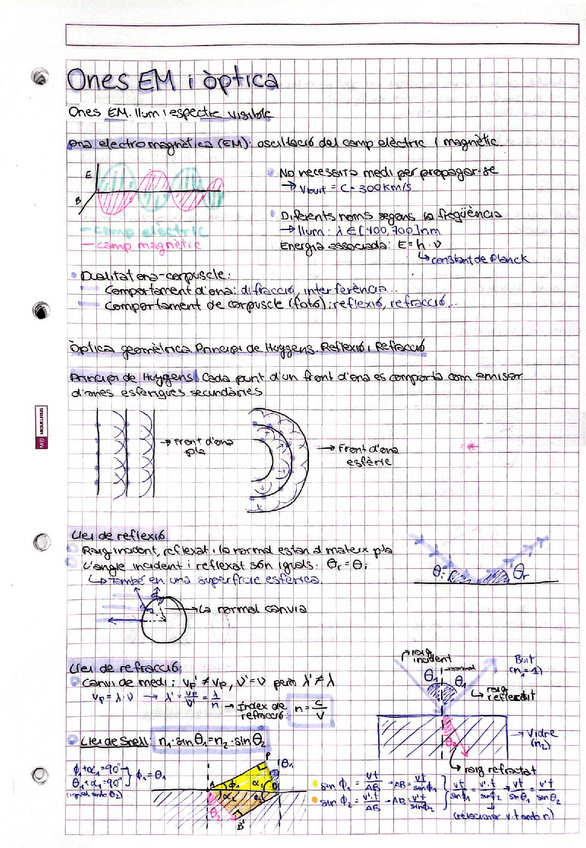 Ones EM i òptica
Ones EM. llum i espectre visible
Ona electromagnètica (EM): oscil·lació del camp elèctric i magnètic.
E
B
— camp elèctric
— camp magnètic
No necessita medi per propagar-se
→ Vbuit = C = 300km/s
Diferents noms segons la freqüència
→ llum: λ ∈ [400, 700]nm
Energia associada: E = h·ν
↳ constant de Planck
Dualitat ona-corpuscle:
Comportament d'ona: difracció, interferència...
Comportament de corpuscle (fotó): reflexió, refracció...
Òptica geomètrica Principi de Huygens. Reflexió i Refracció
Principi de Huygens: Cada punt d'un front d'ona es comporta com emissor
d'ones esfèriques secundàries
→ Front d'ona
pla
→ Front d'ona
esfèric
Llei de reflexió
Raig incident, reflexat i la normal estan al mateix pla
L'angle incident i reflexat són iguals: θr = θi
↳ També en una superfície esfèrica.
→ La normal canvia
θi
θr
Llei de refracció:
Canvi de medi: Vp' ≠ Vp, ν' = ν però λ' ≠ λ
Vp = λ·ν → λ' = Vp/ν' = λ/n → Índex de
refracció: n = C/V
raig
incident
normal
Buit
(n1 = 1)
θ1
θ1
raig
reflexat
→ Vidre
(n2)
θ2
raig refractat
Llei de Snell: n1·sinθ1 = n2·sinθ2
ϕ1+α1=90°
θ1+α1=90°
} ϕ1 = θ1
(igual amb θ2)
A
P
B'
θ1
θ2
ϕ1
α1
α2
sin ϕ1 = vt/AB → AB = vt/sinϕ1
sin ϕ2 = v't/AB → AB = v't/sinϕ2
} vt/sinϕ1 = v't/sinϕ2 → vt/sinθ1 = v't/sinθ2
(relacionar v, t amb n)